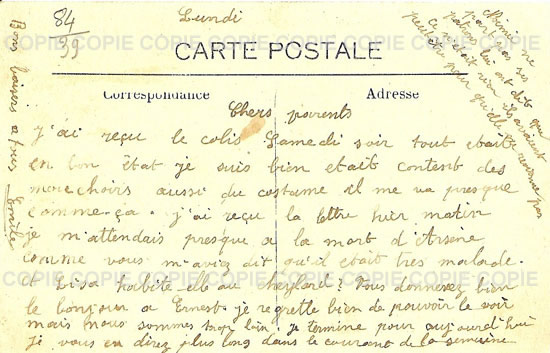 84
39
Lundi
CARTE POSTALE
Correspondance
Adresse
Chers parents
J'ai reçu le colis Samedi soir tout etait
en bon état je suis bien etait content des
mouchoirs aussi du costume il me va presque
comme ça. j'ai reçu la lettre hier matin
je m'attendais presque a la mort d'Arsene
comme vous m'aviez dit qu'il etait très malade.
et Lisa habite-elle au cheylard? Vous donnerez bien
le bonjour a Ernest. je regrette bien de pouvoir le voir
mais nous sommes trop loin. je termine pour aujourd'hui
je vous en direz plus long dans le courant de la semaine
Bons baisers a tous Emile
ne
porte pas
patron lui ont dit que
ce n'était rien ils avaient
peur pour qu'elle
COPIE COPIE COPIE COPIE COPIE COPIE COPIE COPIE
COPIE COPIE COPIE COPIE COPIE COPIE COPIE COPIE
COPIE COPIE COPIE COPIE COPIE COPIE COPIE COPIE